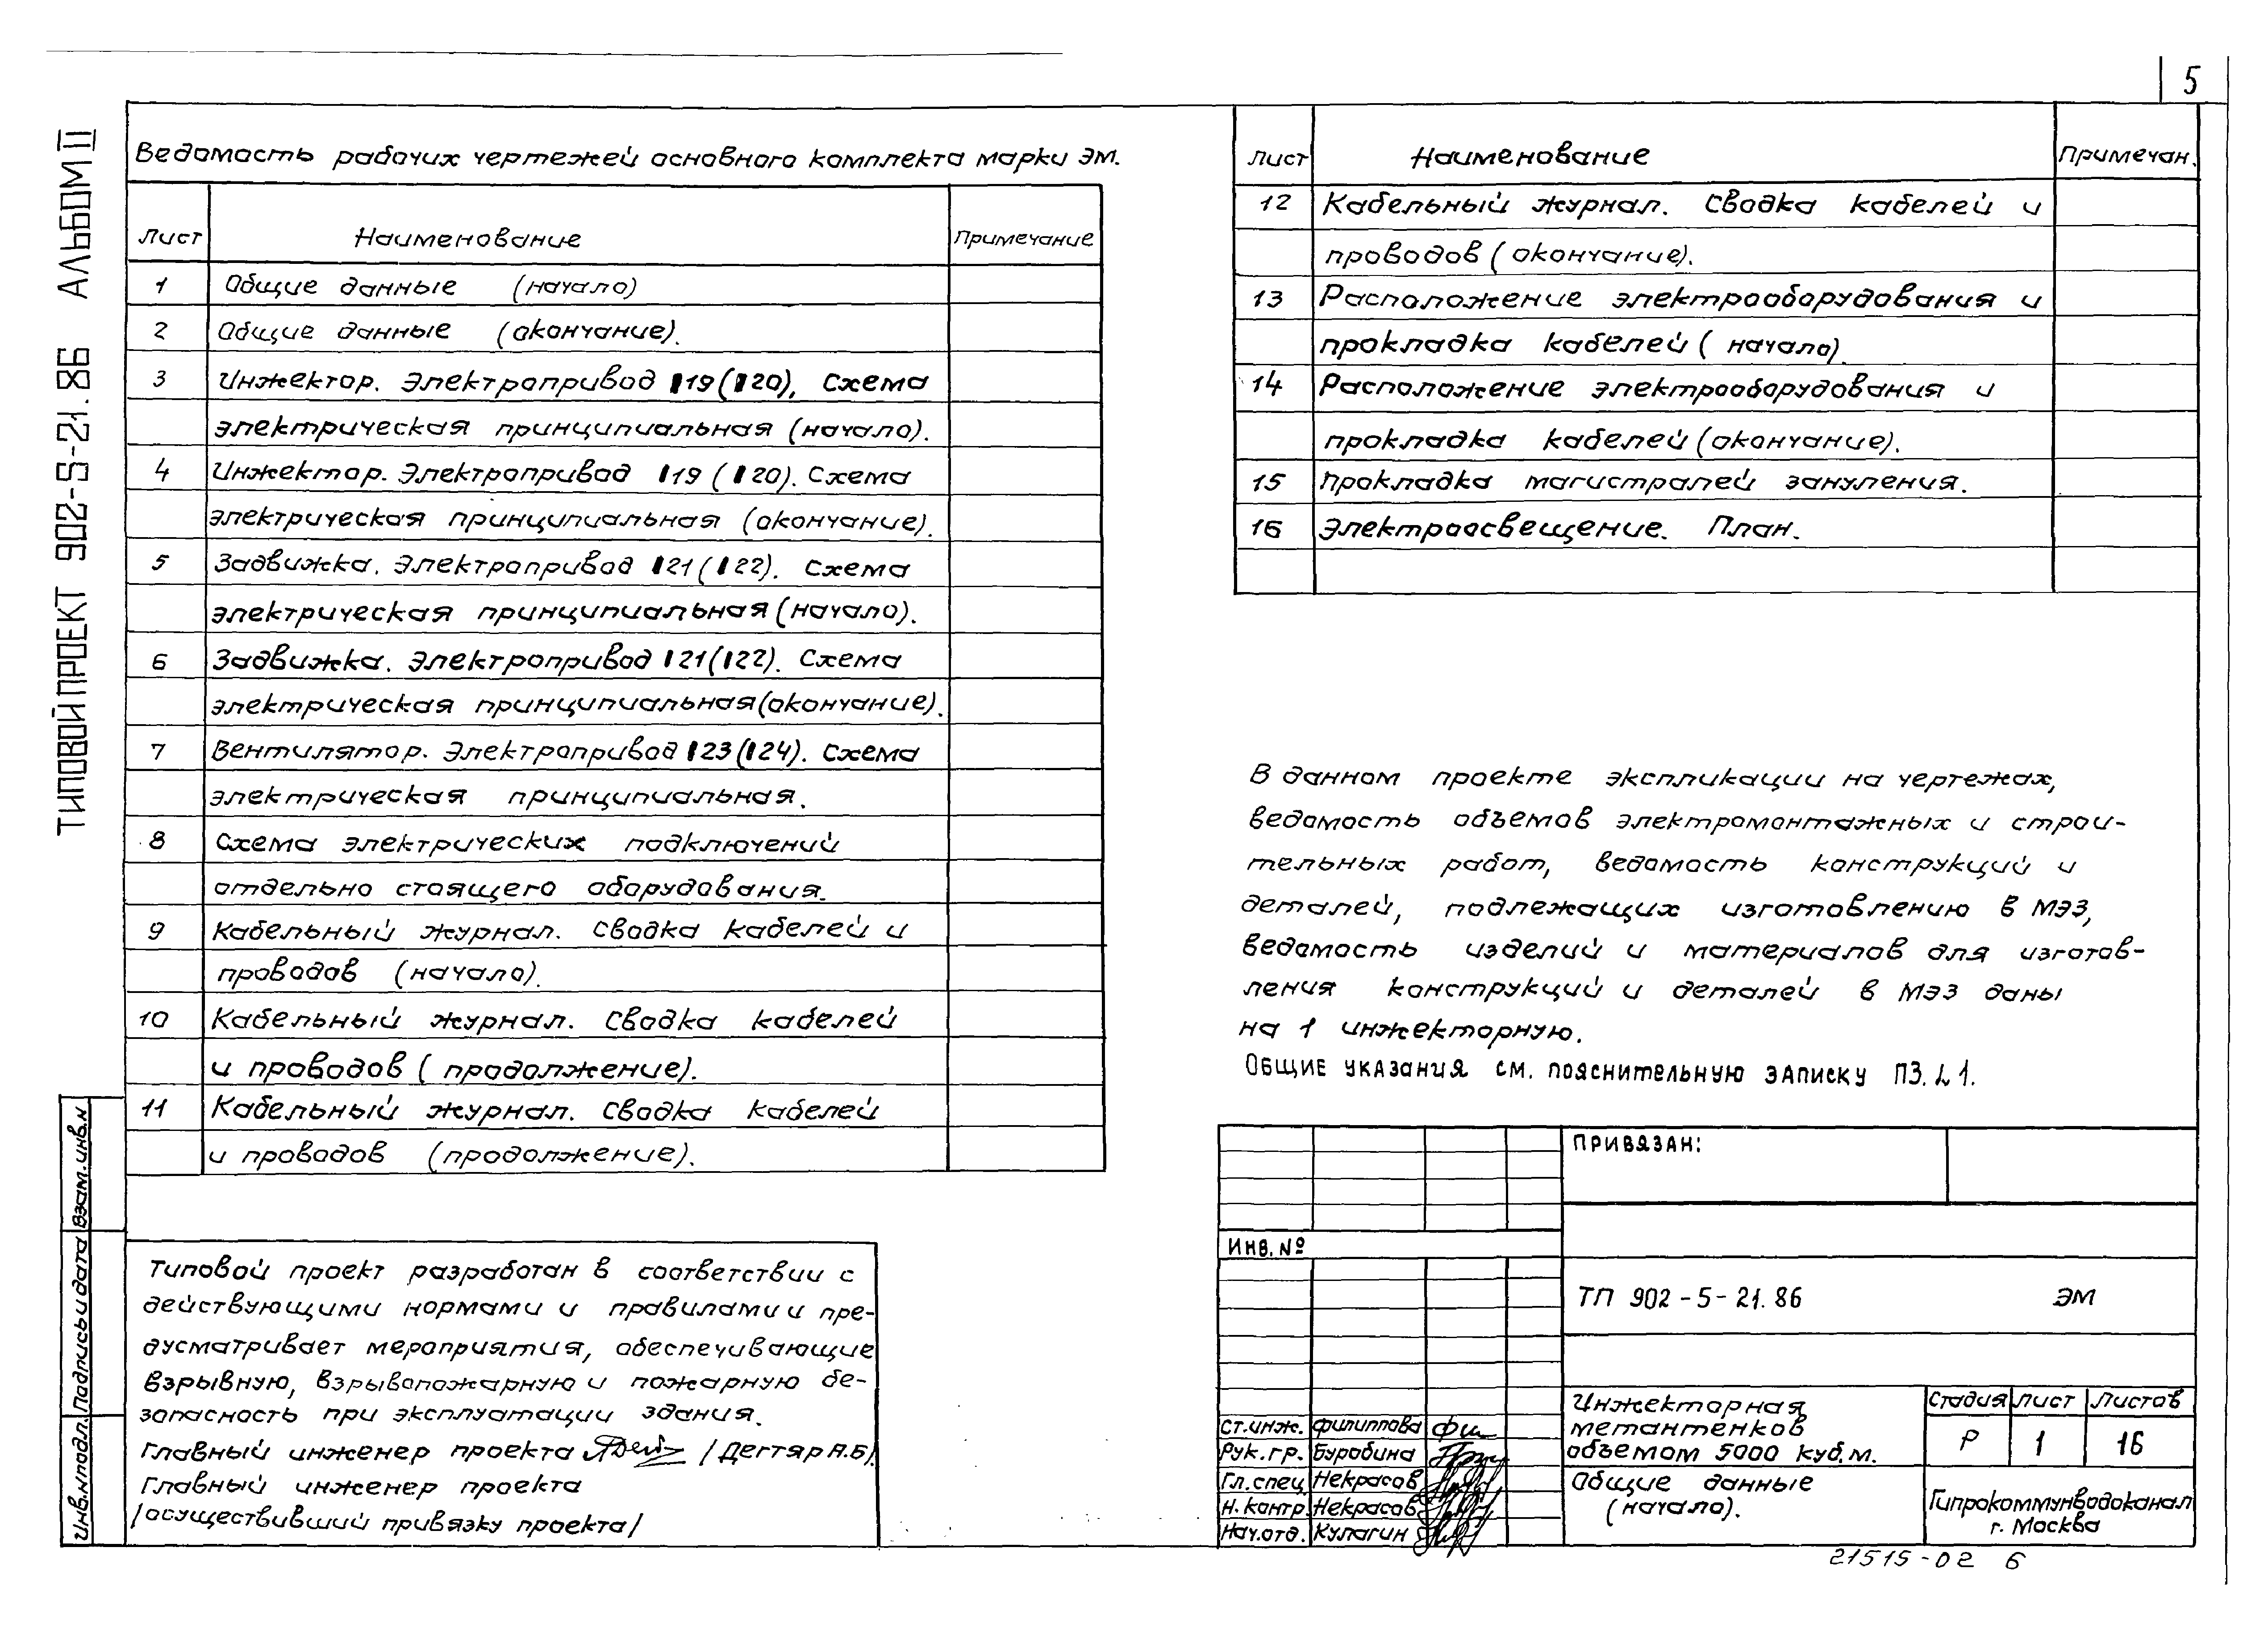 5
ТИПОВОЙ ПРОЕКТ 902-5-21.86 АЛЬБОМ II
Ведомость рабочих чертежей основного комплекта марки ЭМ.
Лист Наименование Примечание
1 Общие данные (начало)
2 Общие данные (окончание).
3 Инжектор. Электропривод 119 (120), Схема
электрическая принципиальная (начало).
4 Инжектор. Электропривод 119 (120). Схема
электрическая принципиальная (окончание).
5 Задвижка. Электропривод 121 (122). Схема
электрическая принципиальная (начало).
6 Задвижка. Электропривод 121 (122). Схема
электрическая принципиальная (окончание).
7 Вентилятор. Электропривод 123 (124). Схема
электрическая принципиальная.
8 Схема электрических подключений
отдельно стоящего оборудования.
9 Кабельный журнал. Сводка кабелей и
проводов (начало).
10 Кабельный журнал. Сводка кабелей
и проводов (продолжение).
11 Кабельный журнал. Сводка кабелей
и проводов (продолжение).
Лист Наименование Примечан.
12 Кабельный журнал. Сводка кабелей и
проводов (окончание).
13 Расположение электрооборудования и
прокладка кабелей (начало).
14 Расположение электрооборудования и
прокладка кабелей (окончание).
15 Прокладка магистралей зануления.
16 Электроосвещение. План.
В данном проекте экспликации на чертежах,
ведомость объемов электромонтажных и строи-
тельных работ, ведомость конструкций и
деталей, подлежащих изготовлению в МЭЗ,
ведомость изделий и материалов для изготов-
ления конструкций и деталей в МЭЗ даны
на 1 инжекторную.
Общие указания см. пояснительную записку ПЗ.
Типовой проект разработан в соответствии с
действующими нормами и правилами и пре-
дусматривает мероприятия, обеспечивающие
взрывную, взрывопожарную и пожарную бе-
запасность при эксплуатации здания.
Главный инженер проекта /Дегтяр А.Б/.
Главный инженер проекта
/осуществивший привязку проекта/
Взам.инв.N
Подпись и дата
Инв.N подл.
ПРИВЯЗАН:
ИНВ. №
ТП 902-5-21.86 ЭМ
Ст.инж. Филиппова
Рук.гр. Буробина
Гл.спец. Некрасов
Н.контр. Некрасов
Нач.отд. Кулагин
Инжекторная
метантенков
объемом 5000 куб.м.
Стадия Лист Листов
Р 1 16
Общие данные
(начало).
Гипрокоммунводоканал
г. Москва
21515-02 6